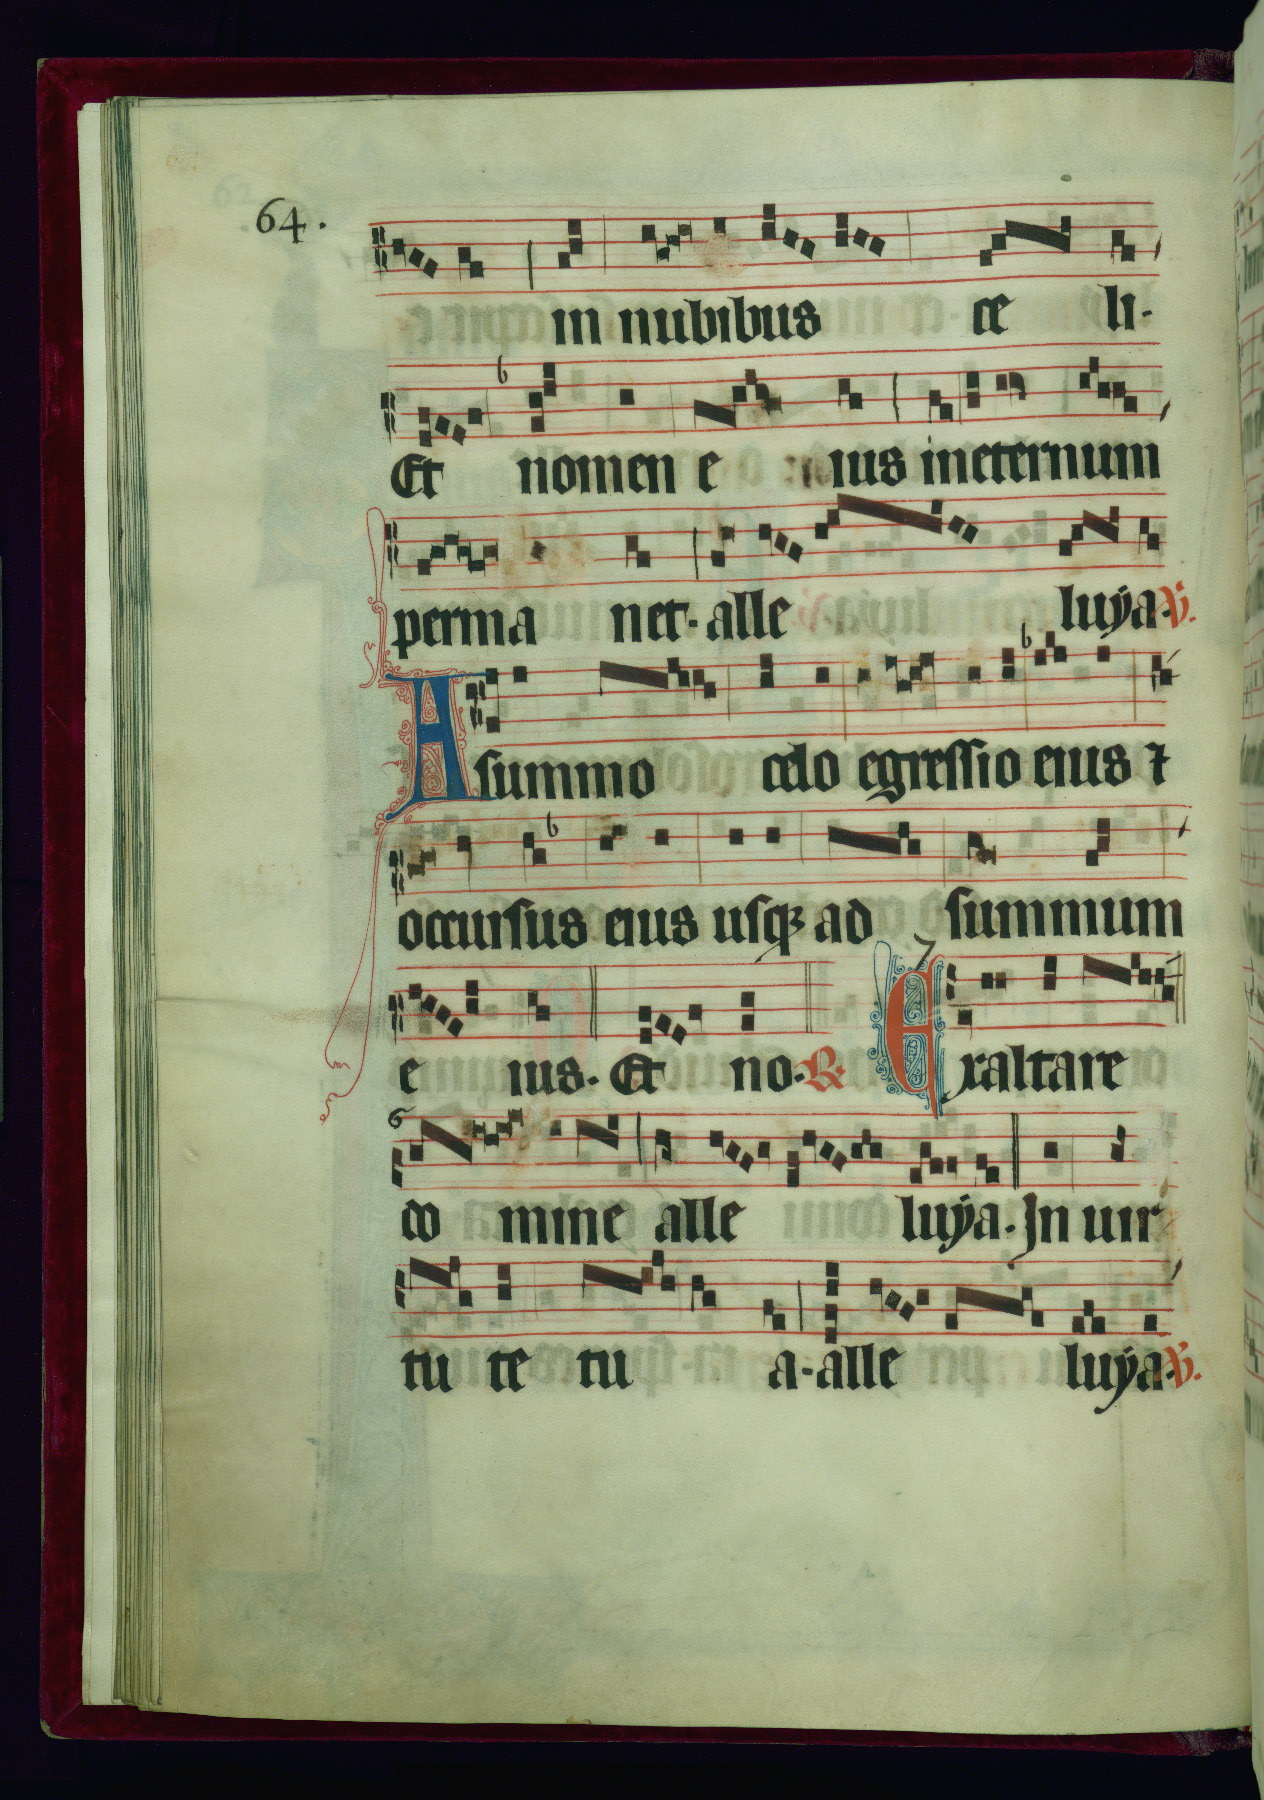 64.
in nubibus ce li.
Et nomen e ius ineternum
perma net. alle luÿa. V.
A summo celo egressio eius ⁊
occursus eius usq₃ ad summum
e ius. Et no. R. Exaltare
do mine alle luÿa. In uir
tu te tu a. alle luÿa. V.